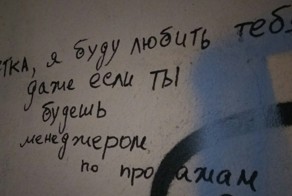 я буду любить тебя
даже если ты
будешь
менеджером
по продажам